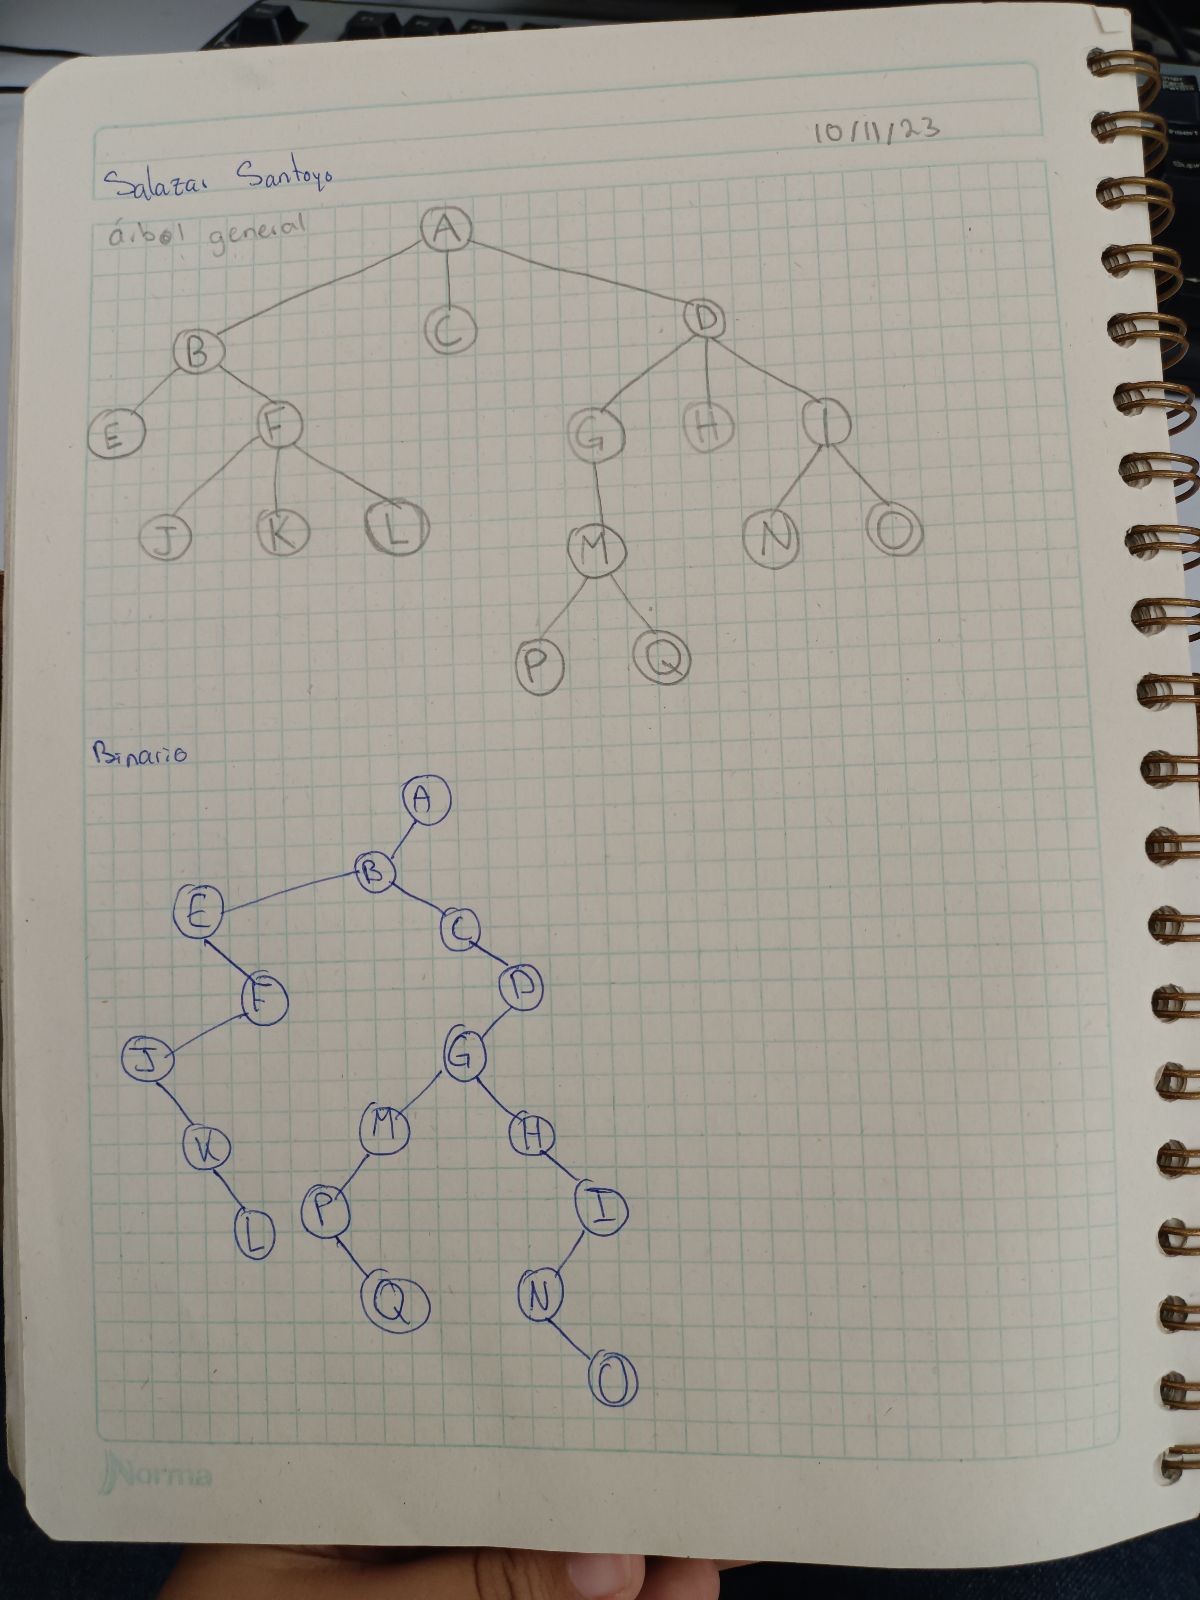 10/11/23
Salazar Santoyo
árbol general
A
B C D
E F G H I
J K L M N O
P Q
Binario
A
B
E C
F D
J G
K M H
L P I
Q N
O
Norma